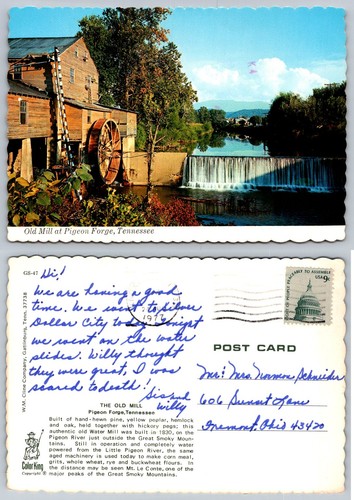 Old Mill at Pigeon Forge, Tennessee
GS-47
Hi!
We are having a good
time. We went to Silver
Dollar City today except
we went on the water
slides. Willy thought
they were great, I was
scared to death!
Sis and
Willy
W.M. Cline Company, Gatlinburg, Tenn. 37738
THE OLD MILL
Pigeon Forge, Tennessee
Built of hand-hewn pine, yellow poplar, hemlock
and oak, held together with hickory pegs; this
authentic old Water Mill was built in 1830, on the
Pigeon River just outside the Great Smoky Moun-
tains. Still in operation and completely water
powered from the Little Pigeon River, the same
aged machinery is used today to make corn meal,
grits, whole wheat, rye and buckwheat flours. In
the distance may be seen Mt. Le Conte, one of the
major peaks of the Great Smoky Mountains.
Color King
1977
USA 9c
RIGHT OF PEOPLE PEACEABLY TO ASSEMBLE
POST CARD
Mr. Mrs. Norman Schneider
606 Sunset Lane
Fremont, Ohio 43420